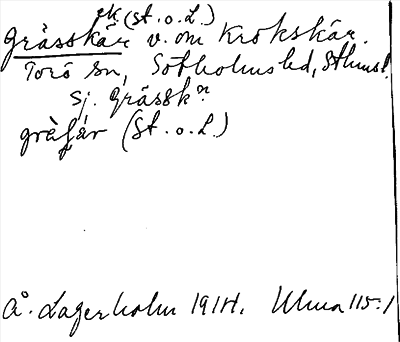 sk (st. o. L.)
Grässkär v. om Krokskär.
Torö sn, Sotholms hd, Sthms l.
Sj. Grässkn
gräfär (st. o. L.)
Å. Lagerholm 1914. Ulma 115:1